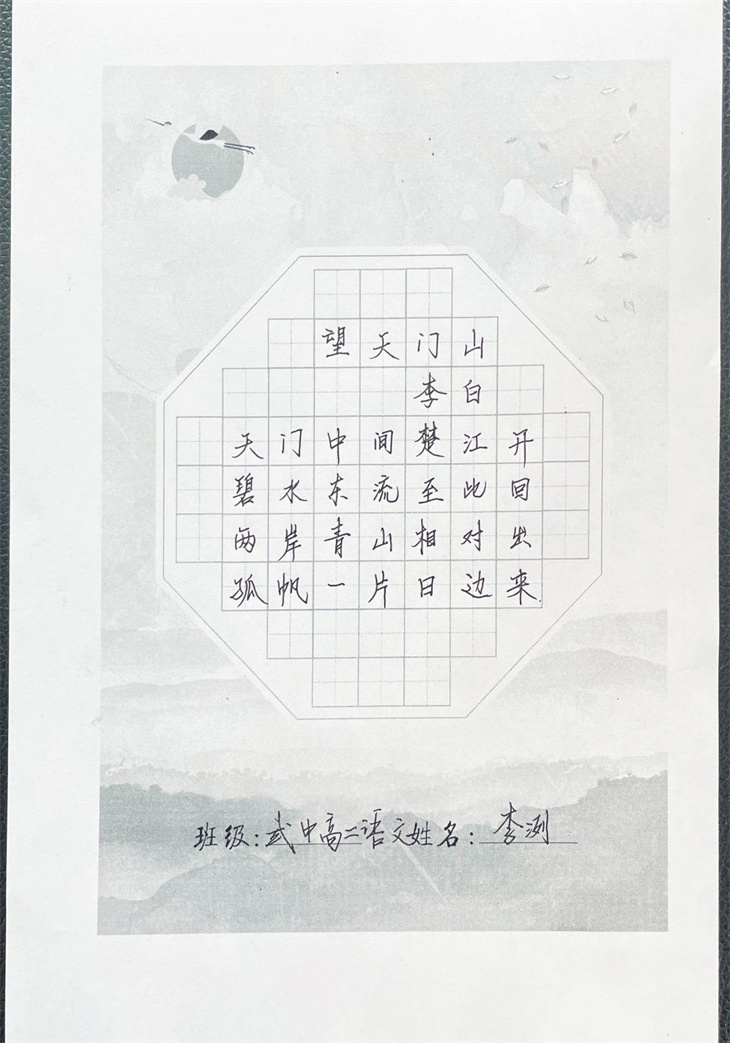 望天门山
李白
天门中间楚江开
碧水东流至此回
两岸青山相对出
孤帆一片日边来
班级:武中高二语文姓名:李洌